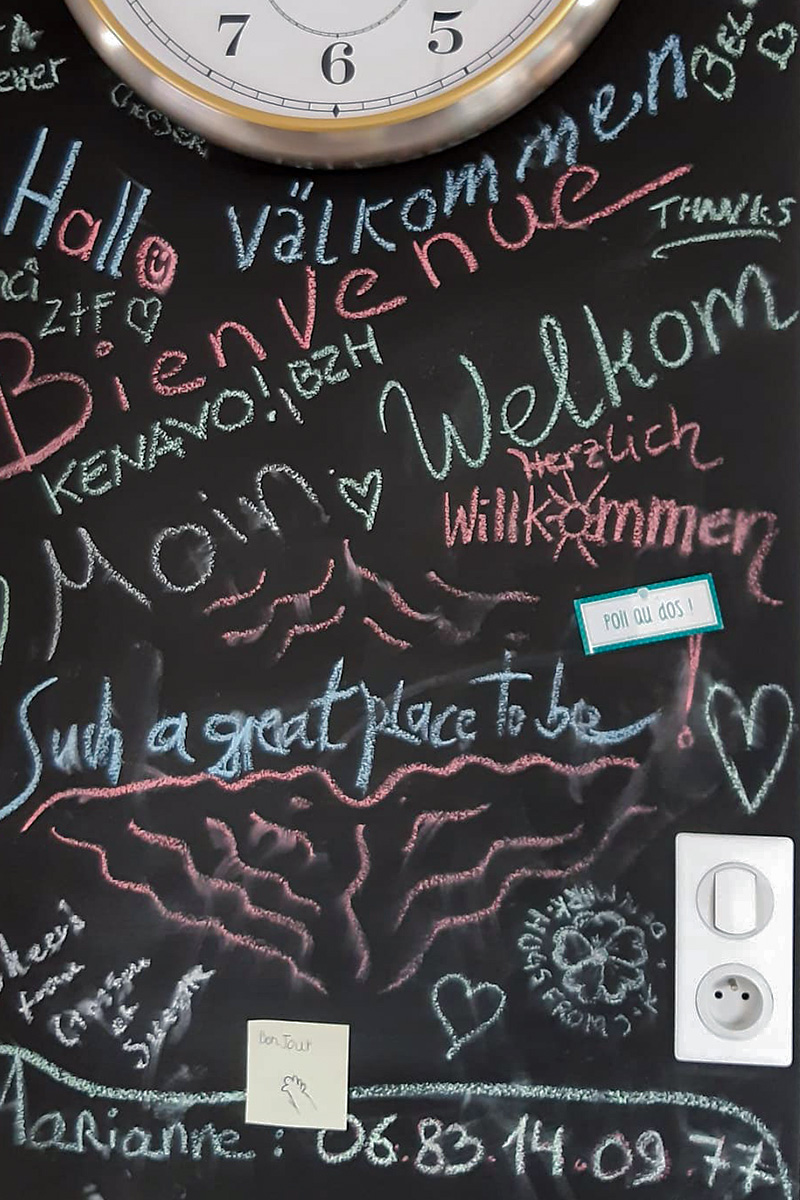 7 6 5
Hallo
Välkommen
THANKS
Bienvenue
KENAVO! BZH
Welkom
Herzlich
Willkommen
Moin
Poil au dos !
Such a great place to be !
HUGS FROM
BonJour
Marianne : 06.83.14.09.77